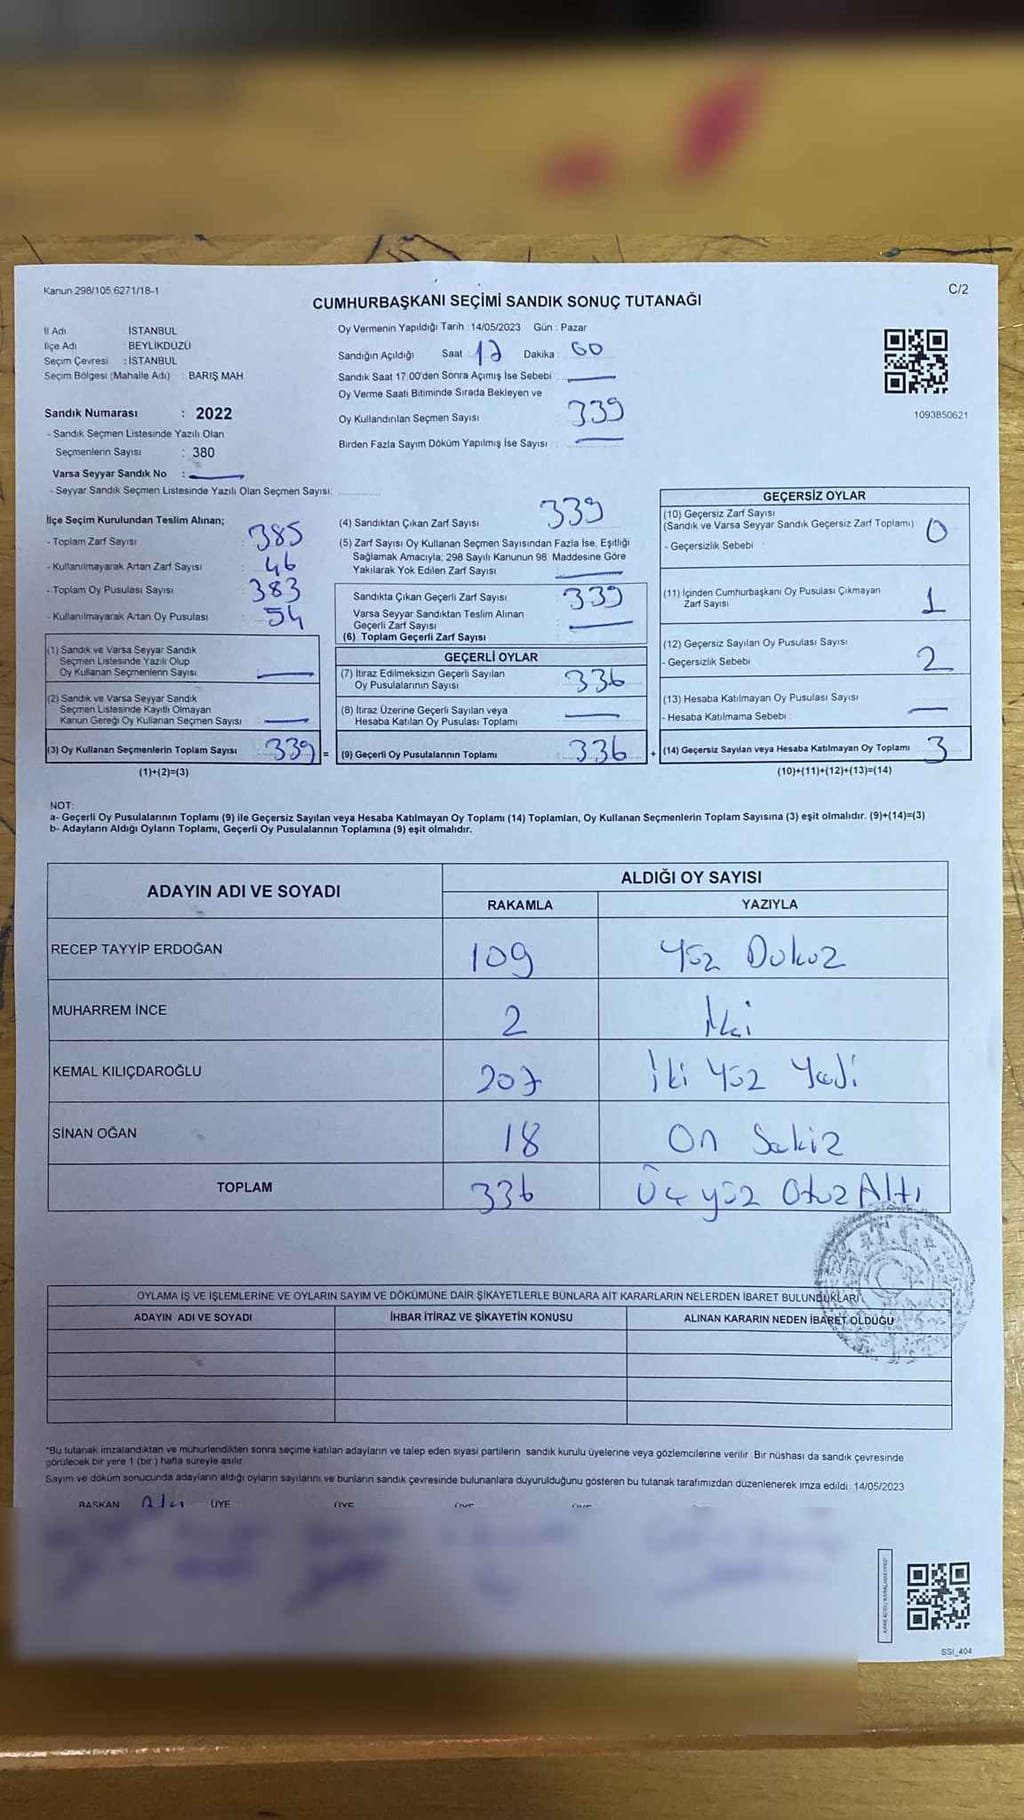 Kanun 298/105,6271/18-1
C/2
CUMHURBAŞKANI SEÇİMİ SANDIK SONUÇ TUTANAĞI
İl Adı : İSTANBUL
İlçe Adı : BEYLİKDÜZÜ
Seçim Çevresi : İSTANBUL
Seçim Bölgesi (Mahalle Adı) : BARIŞ MAH.
Sandık Numarası : 2022
- Sandık Seçmen Listesinde Yazılı Olan
Seçmenlerin Sayısı : 380
Varsa Seyyar Sandık No :
- Seyyar Sandık Seçmen Listesinde Yazılı Olan Seçmen Sayısı:
Oy Vermenin Yapıldığı Tarih :14/05/2023 Gün : Pazar
Sandığın Açıldığı Saat 17 Dakika : 00
Sandık Saat 17:00'den Sonra Açımış İse Sebebi :
Oy Verme Saati Bitiminde Sırada Bekleyen ve
Oy Kullandırılan Seçmen Sayısı 339
Birden Fazla Sayım Döküm Yapılmış İse Sayısı :
1093850621
İlçe Seçim Kurulundan Teslim Alınan;
- Toplam Zarf Sayısı : 385
- Kullanılmayarak Artan Zarf Sayısı : 46
- Toplam Oy Pusulası Sayısı : 383
- Kullanılmayarak Artan Oy Pusulası : 54
(1) Sandık ve Varsa Seyyar Sandık
Seçmen Listesinde Yazılı Olup
Oy Kullanan Seçmenlerin Sayısı
(2) Sandık ve Varsa Seyyar Sandık
Seçmen Listesinde Kayıtlı Olmayan
Kanun Gereği Oy Kullanan Seçmen Sayısı :
(3) Oy Kullanan Seçmenlerin Toplam Sayısı : 339 =
(1)+(2)=(3)
(4) Sandıktan Çıkan Zarf Sayısı : 339
(5) Zarf Sayısı Oy Kullanan Seçmen Sayısından Fazla İse, Eşitliği
Sağlamak Amacıyla; 298 Sayılı Kanunun 98. Maddesine Göre
Yakılarak Yok Edilen Zarf Sayısı :
Sandıkta Çıkan Geçerli Zarf Sayısı : 339
Varsa Seyyar Sandıktan Teslim Alınan
Geçerli Zarf Sayısı
(6) Toplam Geçerli Zarf Sayısı
GEÇERLİ OYLAR
(7) İtiraz Edilmeksizin Geçerli Sayılan
Oy Pusulalarının Sayısı : 336
(8) İtiraz Üzerine Geçerli Sayılan veya
Hesaba Katılan Oy Pusulası Toplamı :
(9) Geçerli Oy Pusulalarının Toplamı : 336 +
GEÇERSİZ OYLAR
(10) Geçersiz Zarf Sayısı
(Sandık ve Varsa Seyyar Sandık Geçersiz Zarf Toplamı) 0
- Geçersizlik Sebebi :
(11) İçinden Cumhurbaşkanı Oy Pusulası Çıkmayan
Zarf Sayısı 1
(12) Geçersiz Sayılan Oy Pusulası Sayısı : 2
- Geçersizlik Sebebi :
(13) Hesaba Katılmayan Oy Pusulası Sayısı :
- Hesaba Katılmama Sebebi :
(14) Geçersiz Sayılan veya Hesaba Katılmayan Oy Toplamı : 3
(10)+(11)+(12)+(13)=(14)
NOT:
a- Geçerli Oy Pusulalarının Toplamı (9) ile Geçersiz Sayılan veya Hesaba Katılmayan Oy Toplamı (14) Toplamları, Oy Kullanan Seçmenlerin Toplam Sayısına (3) eşit olmalıdır. (9)+(14)=(3)
b- Adayların Aldığı Oyların Toplamı, Geçerli Oy Pusulalarının Toplamına (9) eşit olmalıdır.
ADAYIN ADI VE SOYADI
ALDIĞI OY SAYISI
RAKAMLA YAZIYLA
RECEP TAYYİP ERDOĞAN 109 Yüz Dokuz
MUHARREM İNCE 2 İki
KEMAL KILIÇDAROĞLU 207 İki Yüz Yedi
SİNAN OĞAN 18 On Sekiz
TOPLAM 336 Üç yüz Otuz Altı
OYLAMA İŞ VE İŞLEMLERİNE VE OYLARIN SAYIM VE DÖKÜMÜNE DAİR ŞİKAYETLERLE BUNLARA AİT KARARLARIN NELERDEN İBARET BULUNDUKLARI
ADAYIN ADI VE SOYADI İHBAR İTİRAZ VE ŞİKAYETİN KONUSU ALINAN KARARIN NEDEN İBARET OLDUĞU
*Bu tutanak imzalandıktan ve mühürlendikten sonra seçime katılan adayların ve talep eden siyasi partilerin sandık kurulu üyelerine veya gözlemcilerine verilir. Bir nüshası da sandık çevresinde
görülecek bir yere 1 (bir ) hafta süreyle asılır.
Sayım ve döküm sonucunda adayların aldığı oyların sayılarını ve bunların sandık çevresinde bulunanlara duyurulduğunu gösteren bu tutanak tarafımızdan düzenlenerek imza edildi. 14/05/2023
BAŞKAN ÜYE ÜYE ÜYE ÜYE
SSI_404